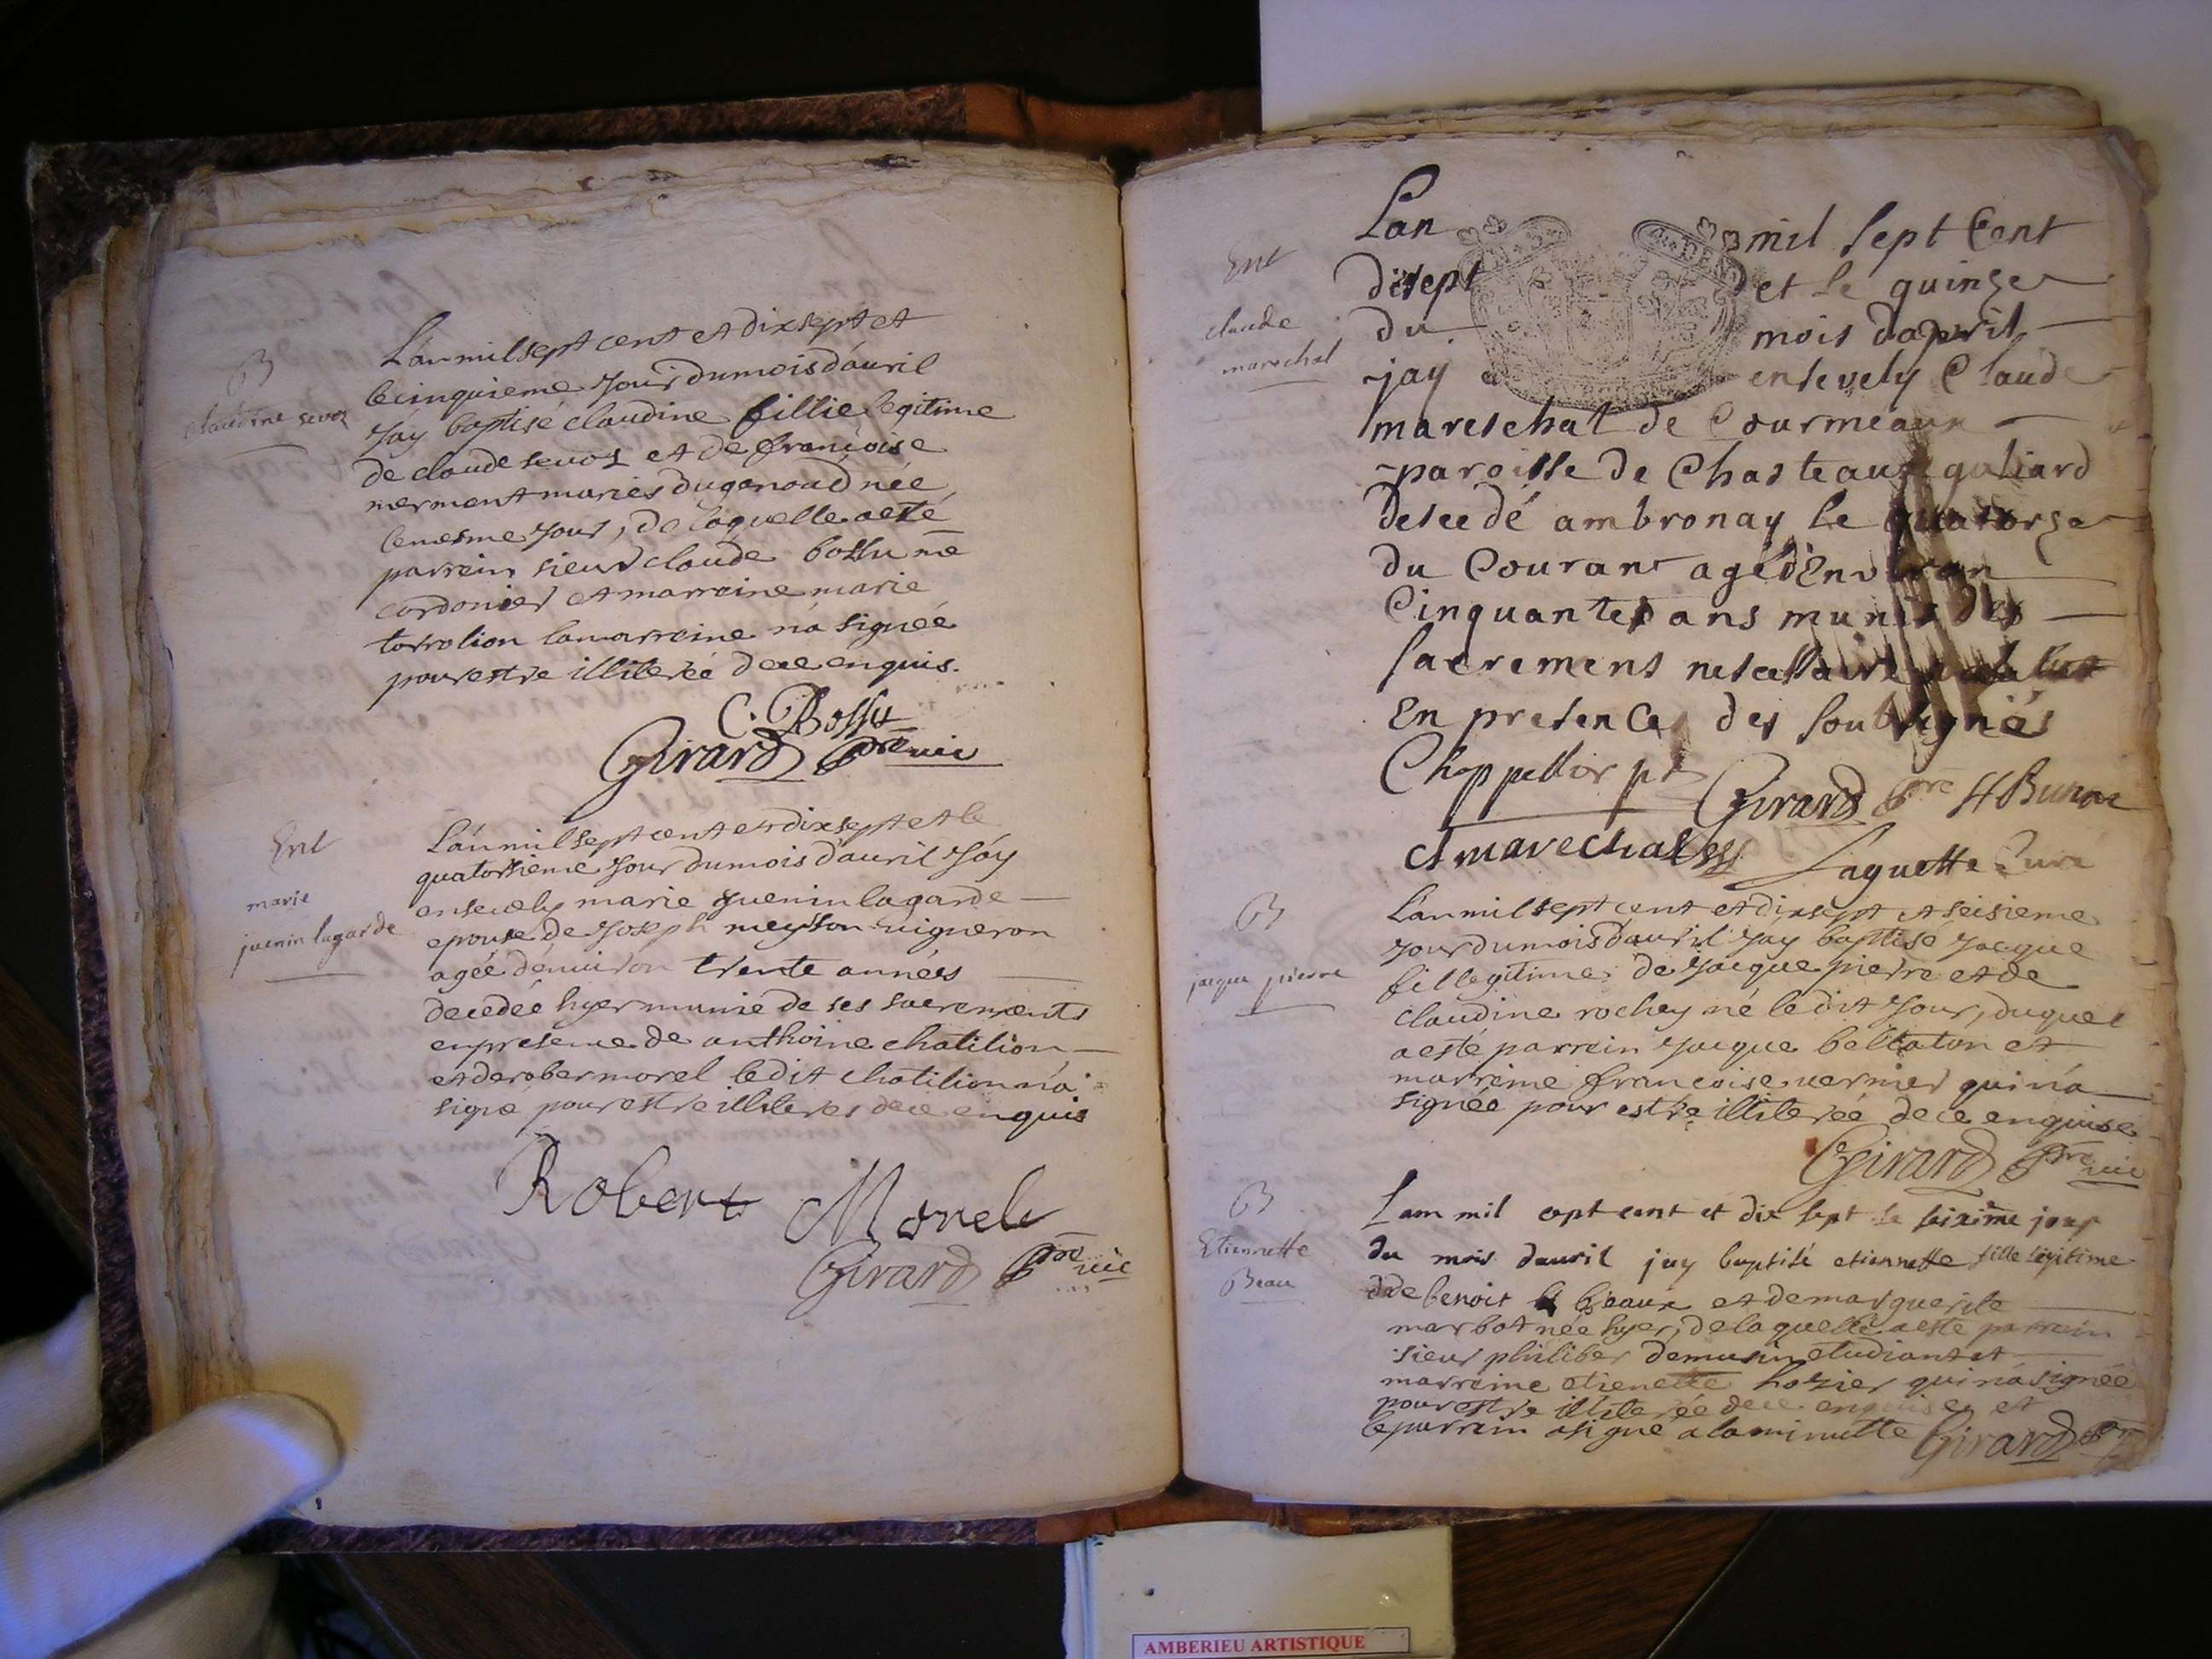 B
claudine sevoz
L'an mil sept cent et dix sept et
le cinquieme jour du mois d'auril
j'ay baptisé claudine fillie legitime
de claude sevoz et de françoise
merment mariés du ganoud née
le mesme jour, de laquelle a esté
parrein sieur claude bossu me
cordonier et marreine marie
la marreine n'a signée
pour estre illiterée de ce enquis.
C. Bossu
Girard pre vic
Ent
marie
juenin lagarde
L'an mil sept cent et dix sept et le
quatorsieme jour du mois d'auril j'ay
ensevely marie juenin lagarde
epouse de joseph meysson vigneron
agée d'enuiron trente années
decedée hyer munie de ses sacrements
en presence de anthoine chatilion
et de rober morel le dit chatilion n'a
signé pour estre illiteres de ce enquis
Robert Morel
Girard pre vic
Ent
claude
marechal
Lan mil sept Cent
disept et le quinze
du mois dapvril
jay ensevely Claude
mareschal de Courmeaux
paroisse de Chasteau galiard
desedé ambronay le quatorze
du Courant agé dEnviron
Cinquantes ans munis des
sacrement nesessaire
En presences des soubsignés
Girard pre
marechal Laguette Curé
B
jacque pierre
L'an mil sept cent et dix sept et seisieme
jour du mois d'auril j'ay baptisé jacque
fil legitime de jacque pierre et de
claudine rochey né le dit jour, duquel
a esté parrein jacque bellaton et
marreine françoise vernier qui n'a
signée pour estre illiterée de ce enquise
Girard pre vic
B
Etiennette
Beau
Lam mil cept cent et dix sept le seixime jour
du mois dauril jay baptisé etiennette fille legitime
de benoit beaux et de marguerite
marbot née hyer, de laquelle a esté parrein
sieur philiber demusin etudiant et
marreine etienette hozier qui n'a signée
pour estre illiterée de ce enquise et
le parrein a signé a la minutte Girard pre
AMBERIEU ARTISTIQUE